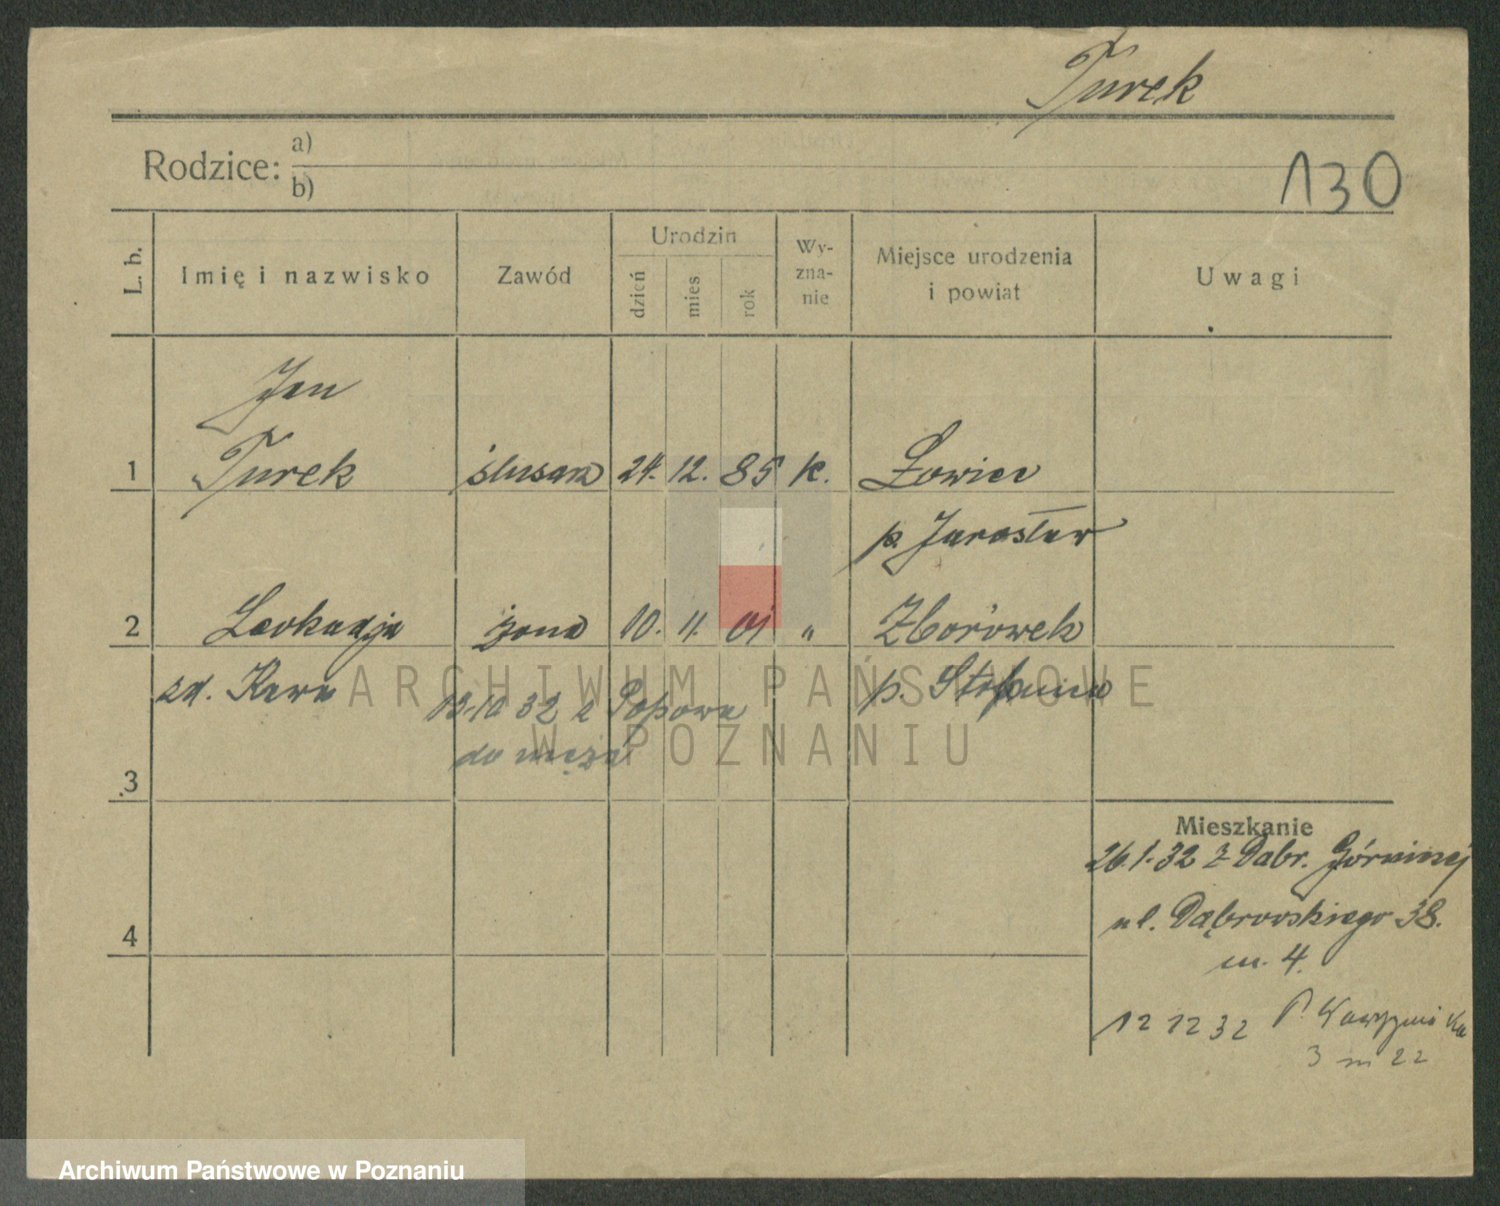 Turek
Rodzice: a)
b)
130
L. b.
Imię i nazwisko
Zawód
Urodzin
dzień
mies
rok
Wy-
zna-
nie
Miejsce urodzenia
i powiat
Uwagi
Jan
1 Turek ślusarz 24. 12. 85 k. Łowiec
p. Jarosław
2 Leokadja żona 10. 11. 01 " Zborówek
zd. Kawa p.
13.10 32 z Popowa
do męża
3
4
Mieszkanie
26.1.32 z Dabr. Górniczej
ul. Dąbrowskiego 38.
m. 4.
12 12 32
3 m 22
ARCHIWUM PAŃSTWOWE
W POZNANIU
Archiwum Państwowe w Poznaniu